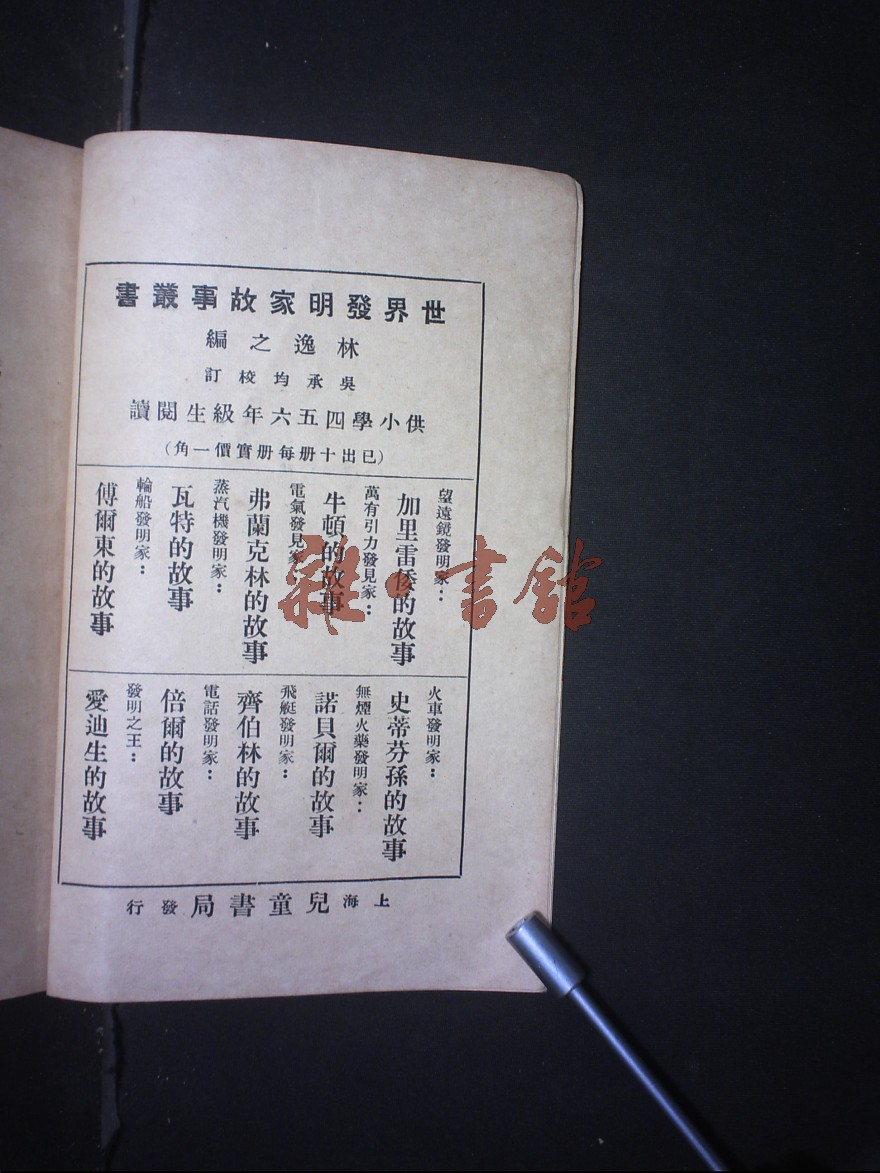 世界發明家故事叢書
林逸之編
吳承均校訂
供小學四五六年級生閱讀
(已出十册每册實價一角)
望遠鏡發明家：
加里雷倭的故事
萬有引力發見家：
牛頓的故事
電氣發見家：
弗蘭克林的故事
蒸汽機發明家：
瓦特的故事
輪船發明家：
傅爾東的故事
火車發明家：
史蒂芬孫的故事
無煙火藥發明家：
諾貝爾的故事
飛艇發明家：
齊伯林的故事
電話發明家：
倍爾的故事
發明之王：
愛迪生的故事
上海兒童書局發行
雜·書館